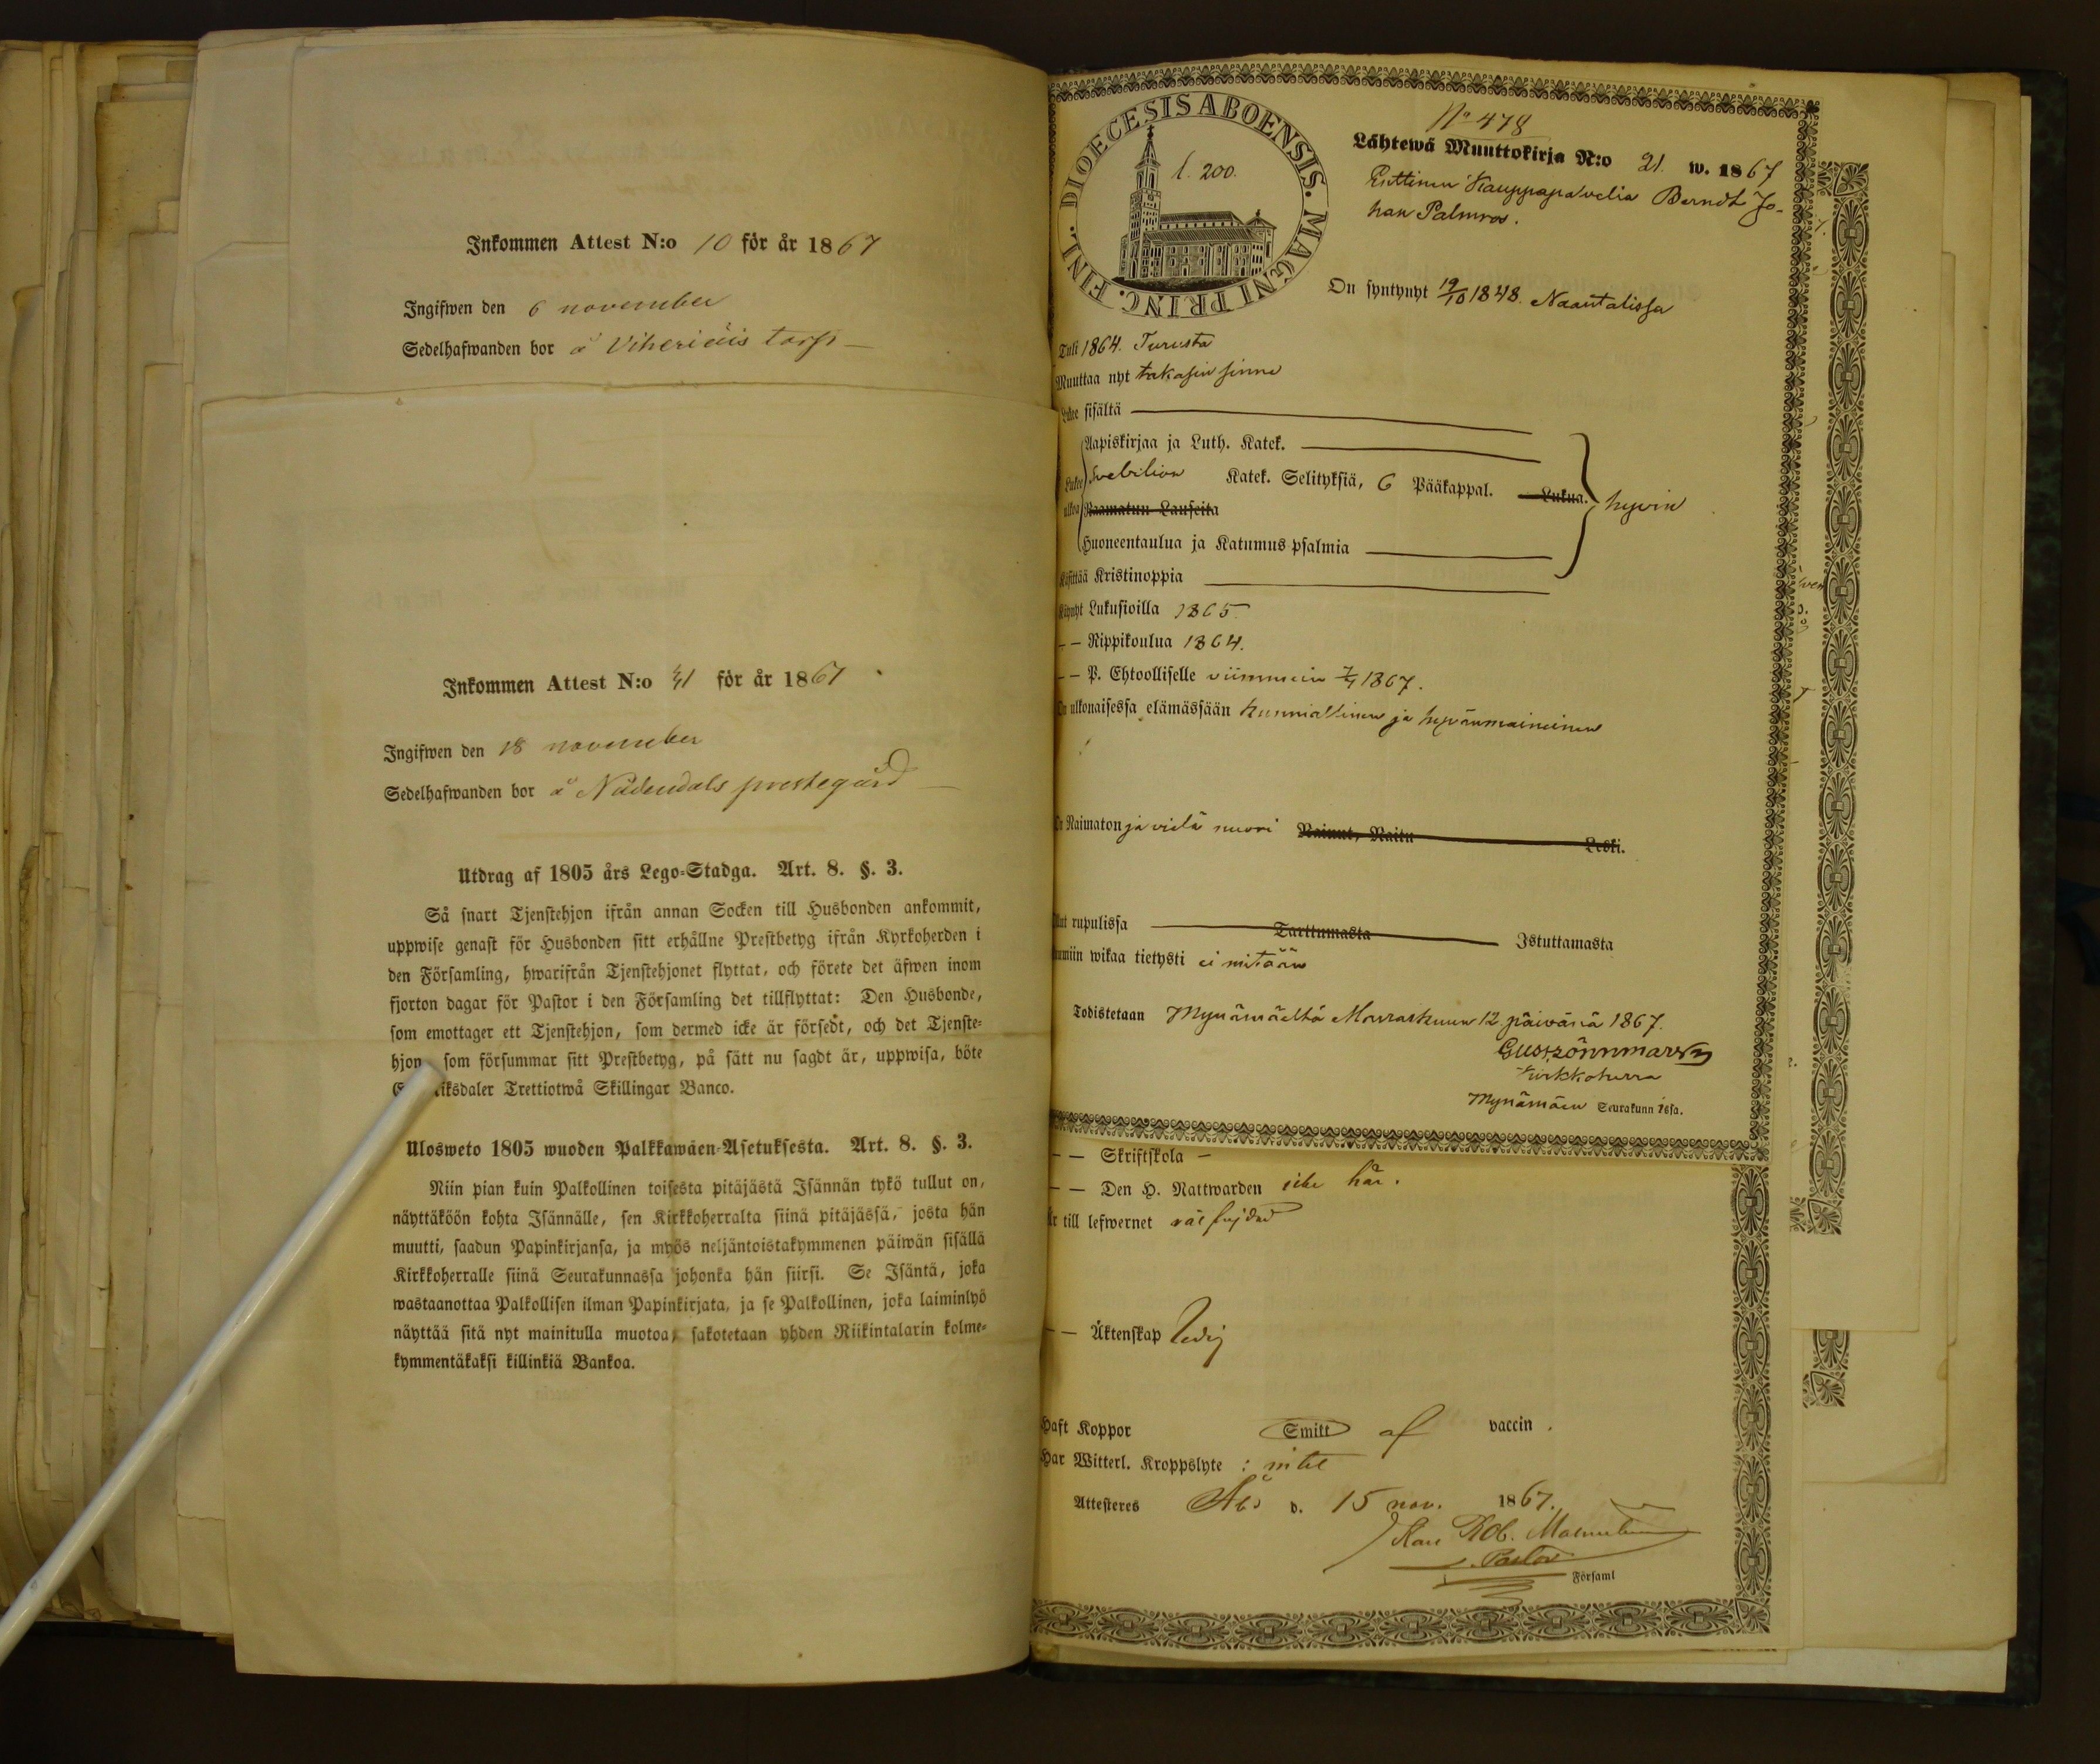 Inkommen Attest N:o 10 för år 1867
Ingifwen den 6 november
Sedelhafwanden bor å Viheriäis torp
Inkommen Attest N:o 41 för år 1867
Ingifwen den 18 november
Sedelhafwanden bor å Nådendals prestegård
Utdrag af 1805 års Lego-Stadga. Art. 8. §. 3.
Så snart Tjenstehjon ifrån annan Socken till Husbonden ankommit,
uppwise genast för Husbonden sitt erhållne Prestbetyg ifrån Kyrkoherden i
den Församling, hwarifrån Tjenstehjonet flyttat, och förete det äfwen inom
fjorton dagar för Pastor i den Församling det tillflyttat: Den Husbonde,
som emottager ett Tjenstehjon, som dermed icke är försedt, och det Tjenste-
hjon som försummar sitt Prestbetyg, på sätt nu sagdt är, uppwisa, böte
iksdaler Trettiotwå Skillingar Banco.
Ulosweto 1805 wuoden Palkkawäen-Asetuksesta. Art. 8. §. 3.
Niin pian kuin Palkollinen toisesta pitäjästä Isännän tykö tullut on,
näyttäköön kohta Isännälle, sen Kirkkoherralta siinä pitäjässä, josta hän
muutti, saadun Papinkirjansa, ja myös neljäntoistakymmenen päiwän sisällä
Kirkkoherralle siinä Seurakunnassa johonka hän siirsi. Se Isäntä, joka
wastaanottaa Palkollisen ilman Papinkirjata, ja se Palkollinen, joka laiminlyö
näyttää sitä nyt mainitulla muotoa, sakotetaan yhden Riikintalarin kolme-
kymmentäkaksi killinkiä Bankoa.
DIOECESIS ABOENSIS. MAGNI PRINC. FINL.
l. 200.
No 478
Lähtewä Muuttokirja N:o 21. w. 1867
Kauppapalvelia Berndt Jo-
han Palmros.
On syntynyt 19/10 1848. Naantalissa
Tuli 1864. Turusta
Muuttaa nyt takasin sinne
Lukee sisältä
Aapiskirjaa ja Luth. Katek.
Lukee ulkoa Svebilion Katek. Selityksiä, 6 Pääkappal. Lukua. hyvin
Raamatun Lauseita
Huoneentaulua ja Katumus psalmia
Käsittää Kristinoppia
Käynyt Lukusioilla 1865
— — Rippikoulua 1864.
— — P. Ehtoolliselle viimmein 7/4 1867.
On ulkonaisessa elämässään kunniallinen ja hyvänmaineinen
On Naimaton ja vielä nuori Nainut, Naitu Leski.
Ollut rupulissa Tarttumasta Istuttamasta
Ruumiin wikaa tietysti ei mitään
Todistetaan Mynämäeltä Marraskuun 12 päivänä 1867.
Kirkkoherra
Mynämäen Seurakunnissa.
— — Skriftskola —
— — Den H. Nattwarden icke här.
Är till lefwernet väl frejdad
— — Äktenskap Ledig
Haft Koppor Smitt af vaccin.
Har Witterl. Kroppslyte: intet
Attesteres Åbo d. 15 nov. 1867.
Pastor
Församl